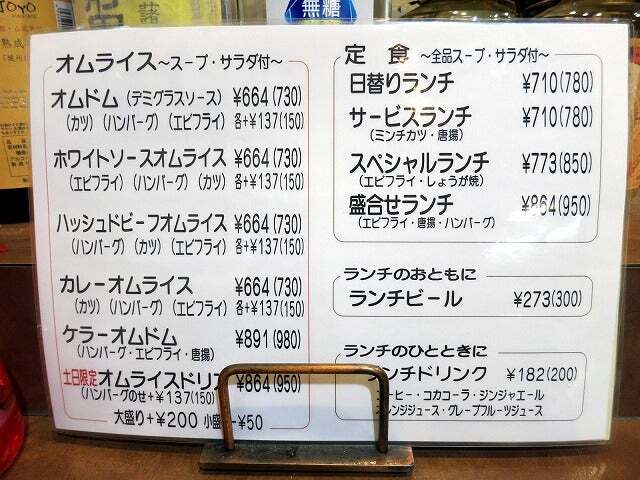 無糖
オムライス～スープ・サラダ付～
オムドム（デミグラスソース）￥664(730)
（カツ）（ハンバーグ）（エビフライ）各+￥137(150)
ホワイトソースオムライス￥664(730)
（エビフライ）（ハンバーグ）（カツ）各+￥137(150)
ハッシュドビーフオムライス￥664(730)
（ハンバーグ）（カツ）（エビフライ）各+￥137(150)
カレーオムライス ￥664(730)
（カツ）（ハンバーグ）（エビフライ）各+￥137(150)
ケラーオムドム ￥891(980)
（ハンバーグ・エビフライ・唐揚）
土日限定オムライスドリア￥864(950)
（ハンバーグのせ+￥137(150)
大盛り+￥200 小盛 -￥50
定食 ～全品スープ・サラダ付～
日替りランチ ￥710(780)
サービスランチ ￥710(780)
（ミンチカツ・唐揚）
スペシャルランチ ￥773(850)
（エビフライ・しょうが焼）
盛合せランチ ￥864(950)
（エビフライ・唐揚・ハンバーグ）
ランチのおともに
ランチビール ￥273(300)
ランチのひとときに
ンチドリンク ￥182(200)
ーヒー・コカコーラ・ジンジャエール
レンジジュース・グレープフルーツジュース